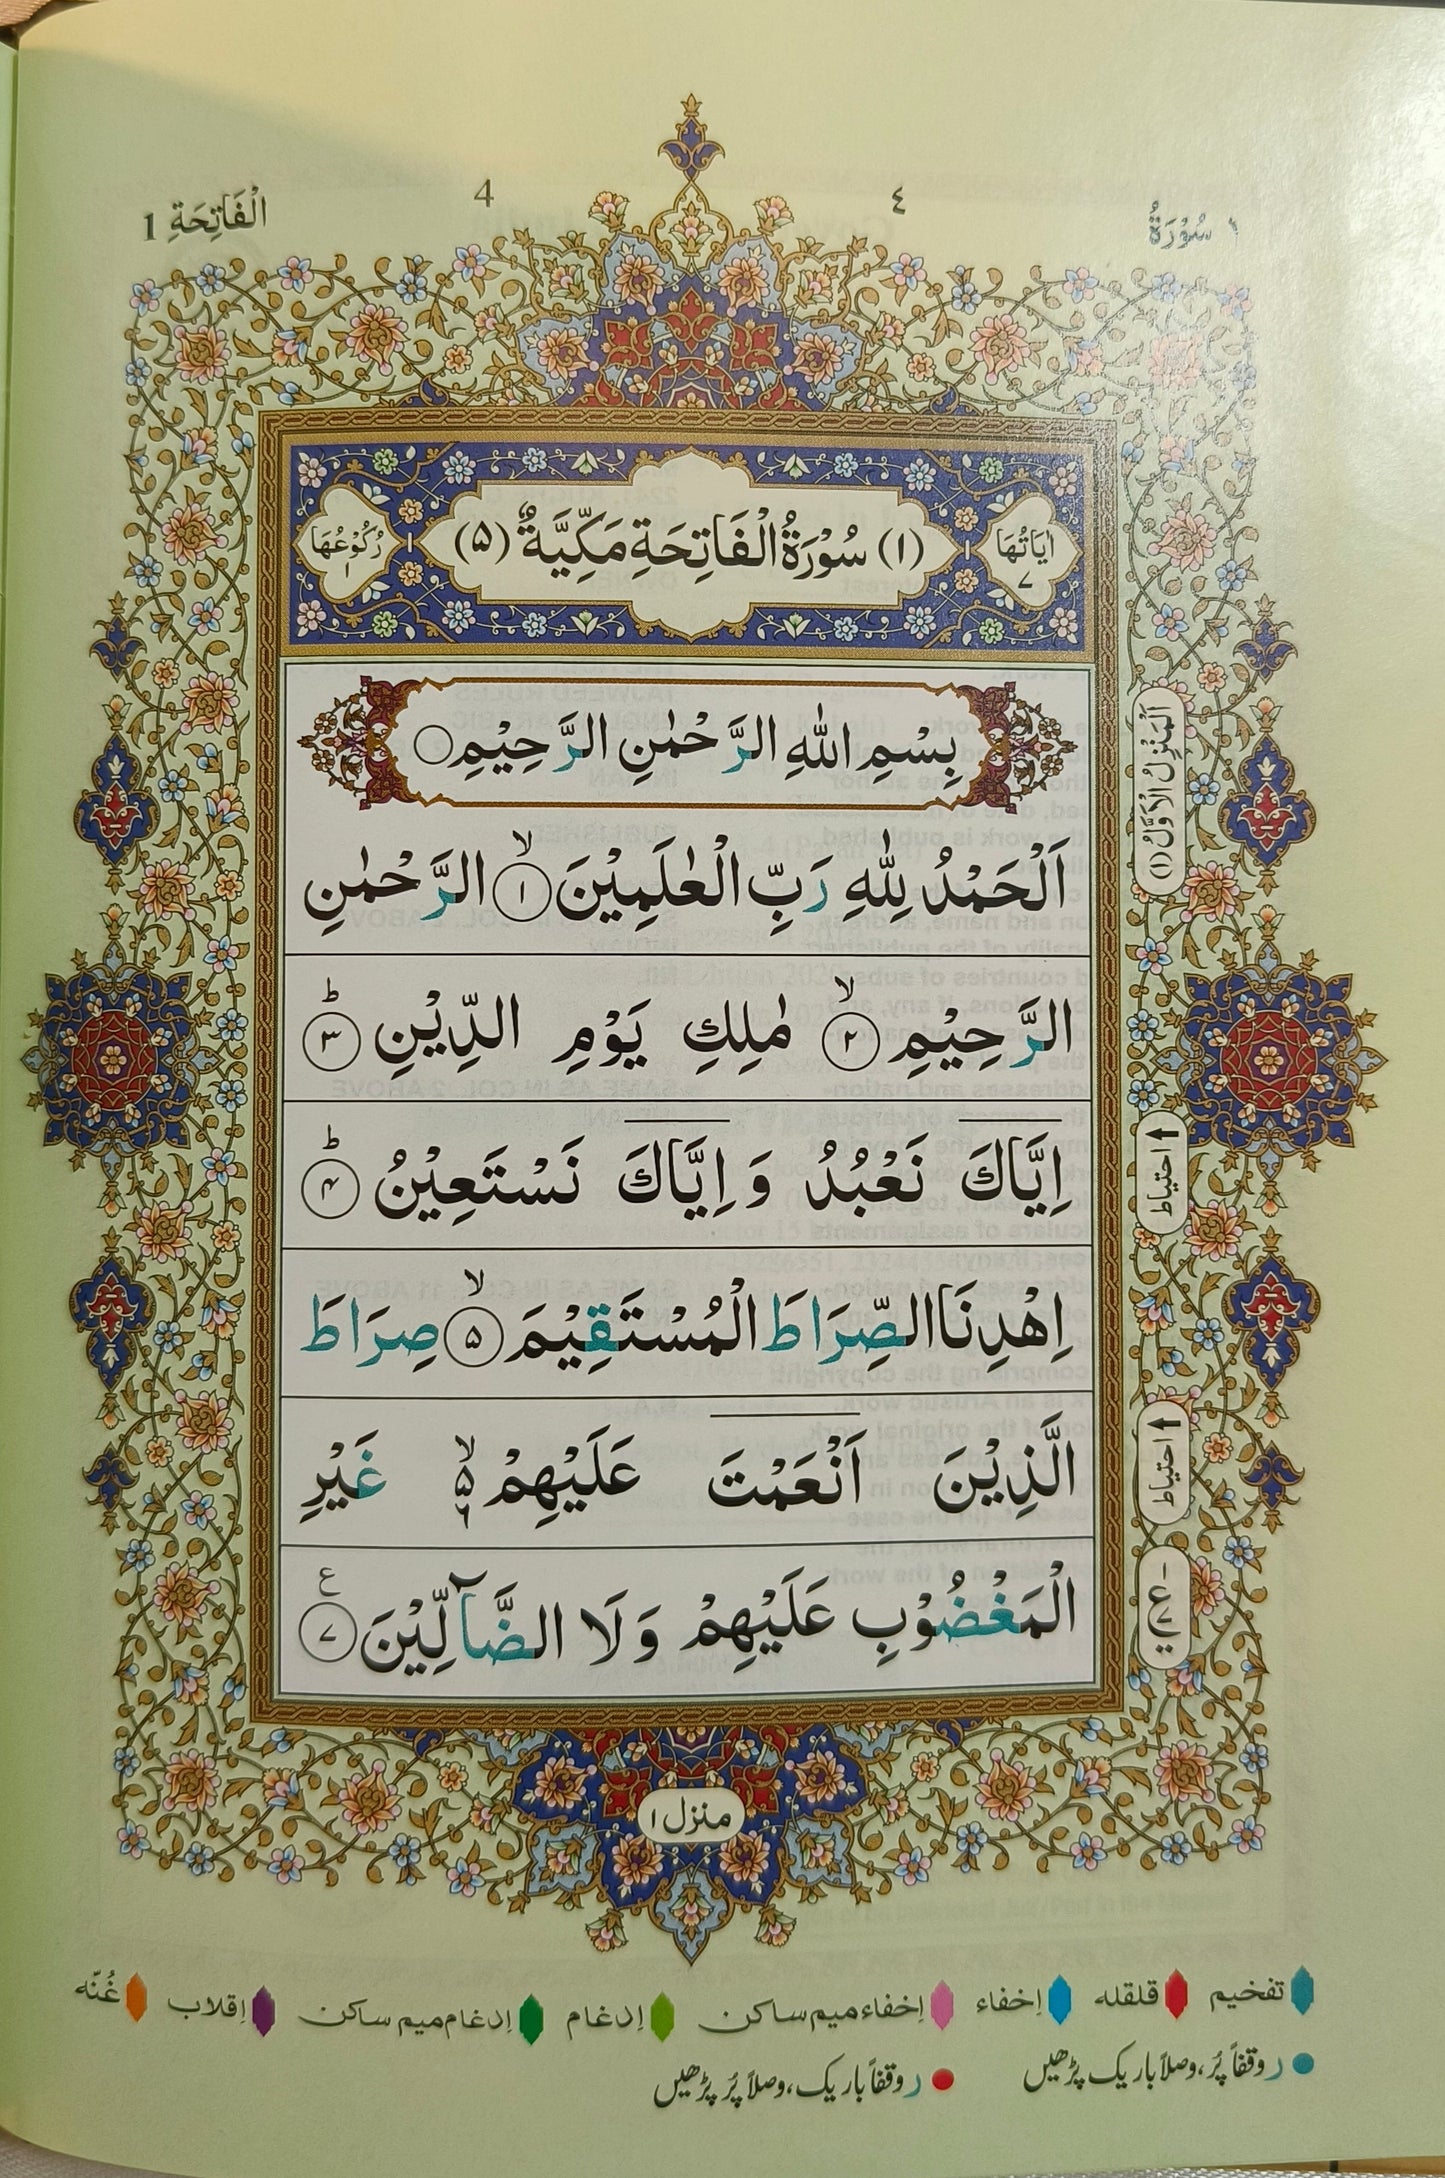 سُوْرَةُ ١
٤
4
الْفَاتِحَةِ 1
اٰيَاتُهَا ٧
(١) سُوْرَةُ الْفَاتِحَةِ مَكِّيَّةٌ (۵)
رُكُوْعُهَا ١
بِسْمِ اللّٰهِ الرَّحْمٰنِ الرَّحِيْمِ
اَلْحَمْدُ لِلّٰهِ رَبِّ الْعٰلَمِيْنَ ۙ﴿١﴾ الرَّحْمٰنِ
الرَّحِيْمِ ۙ﴿٢﴾ مٰلِكِ يَوْمِ الدِّيْنِ ؕ﴿٣﴾
اِيَّاكَ نَعْبُدُ وَ اِيَّاكَ نَسْتَعِيْنُ ؕ﴿۴﴾
اِهْدِنَا الصِّرَاطَ الْمُسْتَقِيْمَ ۙ﴿۵﴾ صِرَاطَ
الَّذِيْنَ اَنْعَمْتَ عَلَيْهِمْ ۙ۵ ۶ غَيْرِ
الْمَغْضُوْبِ عَلَيْهِمْ وَلَا الضَّآلِّيْنَ ع﴿٧﴾
اَلْمَنْزِلُ الْاَوَّلُ (١)
احتیاط
احتیاط
ع
منزل ١
تفخیم قلقله اِخفاء اِخفاء میم ساکن اِدغام اِدغام میم ساکن اِقلاب غُنّه
ر وقفاً پُر، وصلاً باریک پڑھیں
ر وقفاً باریک، وصلاً پُر پڑھیں